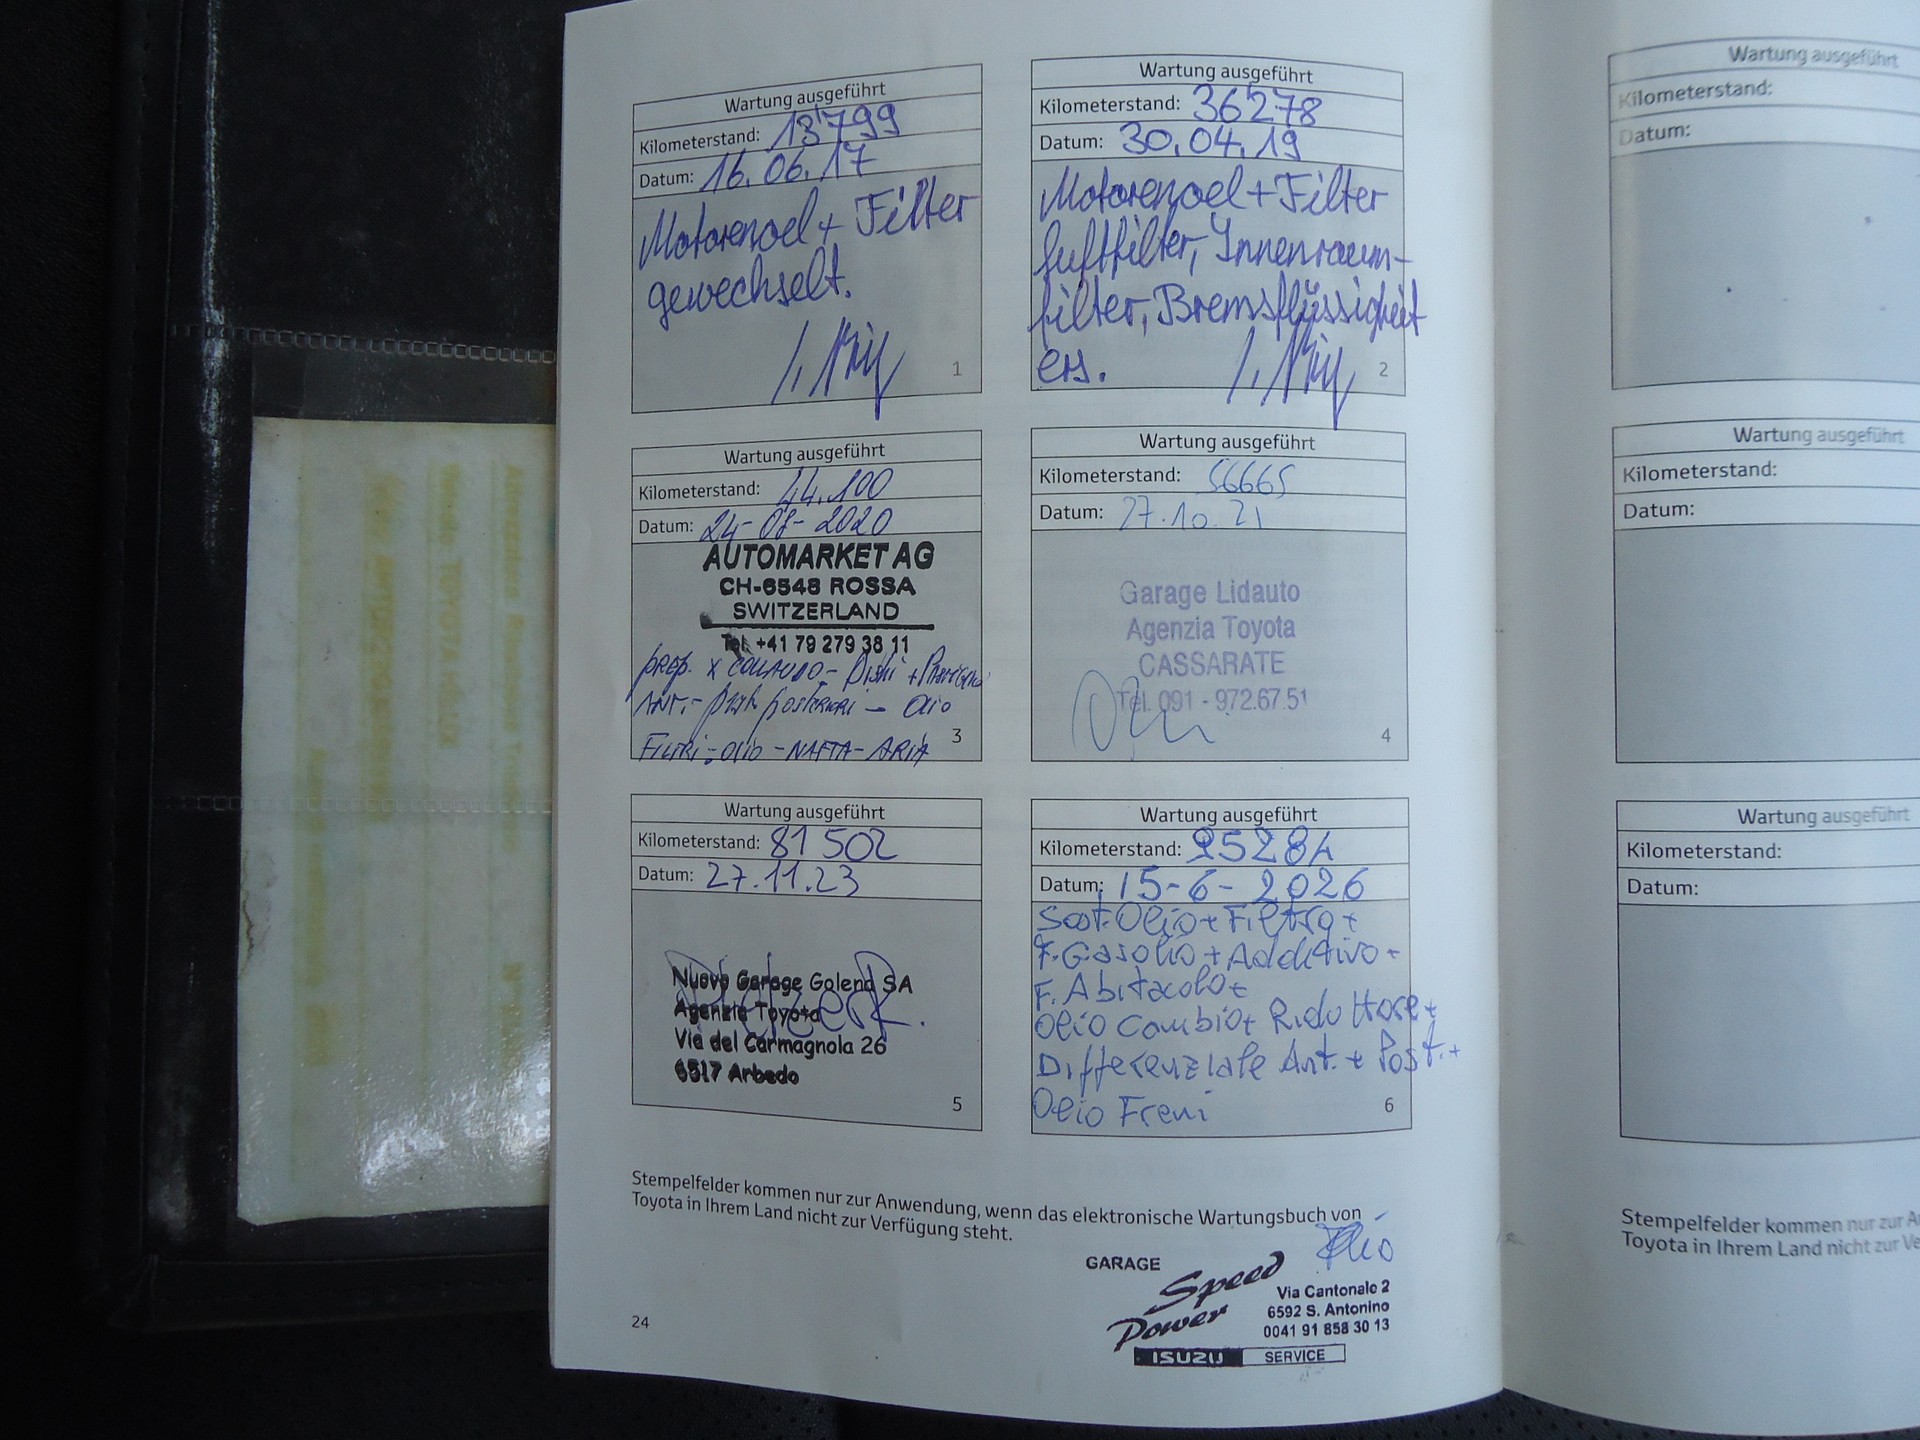 Wartung ausgeführt
Kilometerstand: 13'799
Datum: 16.06.17
Motorenoel + Filter
gewechselt.
1
Wartung ausgeführt
Kilometerstand: 36'278
Datum: 30.04.19
Motorenoel + Filter
Luftfilter, Innenraum-
filter, Bremsflüssigkeit
ers.
2
Wartung ausgeführt
Kilometerstand: 44.100
Datum: 24-08-2020
AUTOMARKET AG
CH-6548 ROSSA
SWITZERLAND
Tel. +41 79 279 38 11
prep. x COLLAUDO - Dischi +
ANT. - posteriori - Olio
FILTRI - OLIO - NAFTA - ARIA
3
Wartung ausgeführt
Kilometerstand: 56665
Datum: 27.10.21
Garage Lidauto
Agenzia Toyota
CASSARATE
Tel. 091 - 972.67.51
4
Wartung ausgeführt
Kilometerstand: 81 502
Datum: 27.11.23
Nuovo Garage Golena SA
Agenzia Toyota
Via del Carmagnola 26
6517 Arbedo
5
Wartung ausgeführt
Kilometerstand: 95281
Datum: 15-6-2026
Sost. Olio + Filtro +
F. Gasolio + Additivo +
F. Abitacolo +
Olio Cambio + Riduttore +
Differenziale Ant. + Post. +
Olio Freni
6
Stempelfelder kommen nur zur Anwendung, wenn das elektronische Wartungsbuch von
Toyota in Ihrem Land nicht zur Verfügung steht.
GARAGE
Speed
Power
Via Cantonale 2
6592 S. Antonino
0041 91 858 30 13
ISUZU SERVICE
24
Wartung ausgeführt
Kilometerstand:
Datum:
Wartung ausgeführt
Kilometerstand:
Datum:
Wartung ausgeführt
Kilometerstand:
Datum:
Stempelfelder kommen nur zur
Toyota in Ihrem Land nicht zur